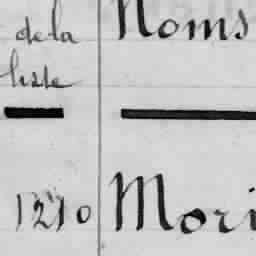 de la Noms
liste
1210 Mori